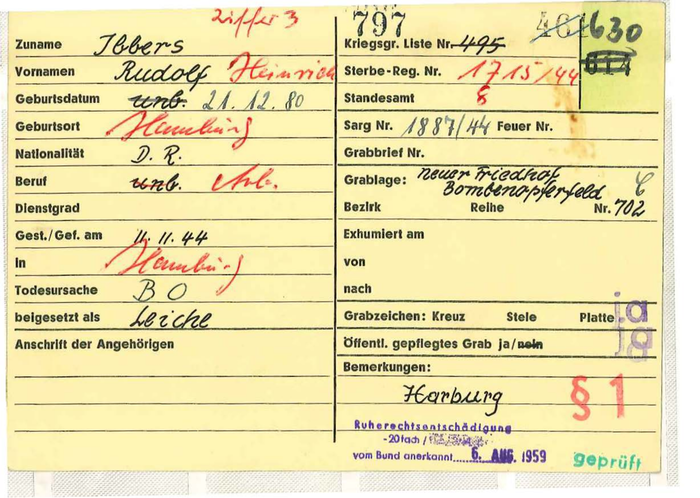 Ziffer 3
Zuname Ibbers
Vornamen Rudolf Heinrich
Geburtsdatum unb. 21. 12. 80
Geburtsort Hamburg
Nationalität D. R.
Beruf unb. Arb.
Dienstgrad
Gest./Gef. am 11. 11. 44
In Hamburg
Todesursache B O
beigesetzt als Leiche
Anschrift der Angehörigen
797 630
Kriegsgr. Liste Nr. 495 614
Sterbe-Reg. Nr. 1715/44
Standesamt
Sarg Nr. 1887/44 Feuer Nr.
Grabbrief Nr.
Grablage: neuer Friedhof
Bombenopferfeld
Bezirk Reihe Nr. 702
Exhumiert am
von
nach
Grabzeichen: Kreuz Stele Platte ja
Öffentl. gepflegtes Grab ja/nein ja
Bemerkungen:
Harburg
§ 1
Ruherechtsentschädigung
-20fach /
vom Bund anerkannt 6. AUG. 1959
geprüft